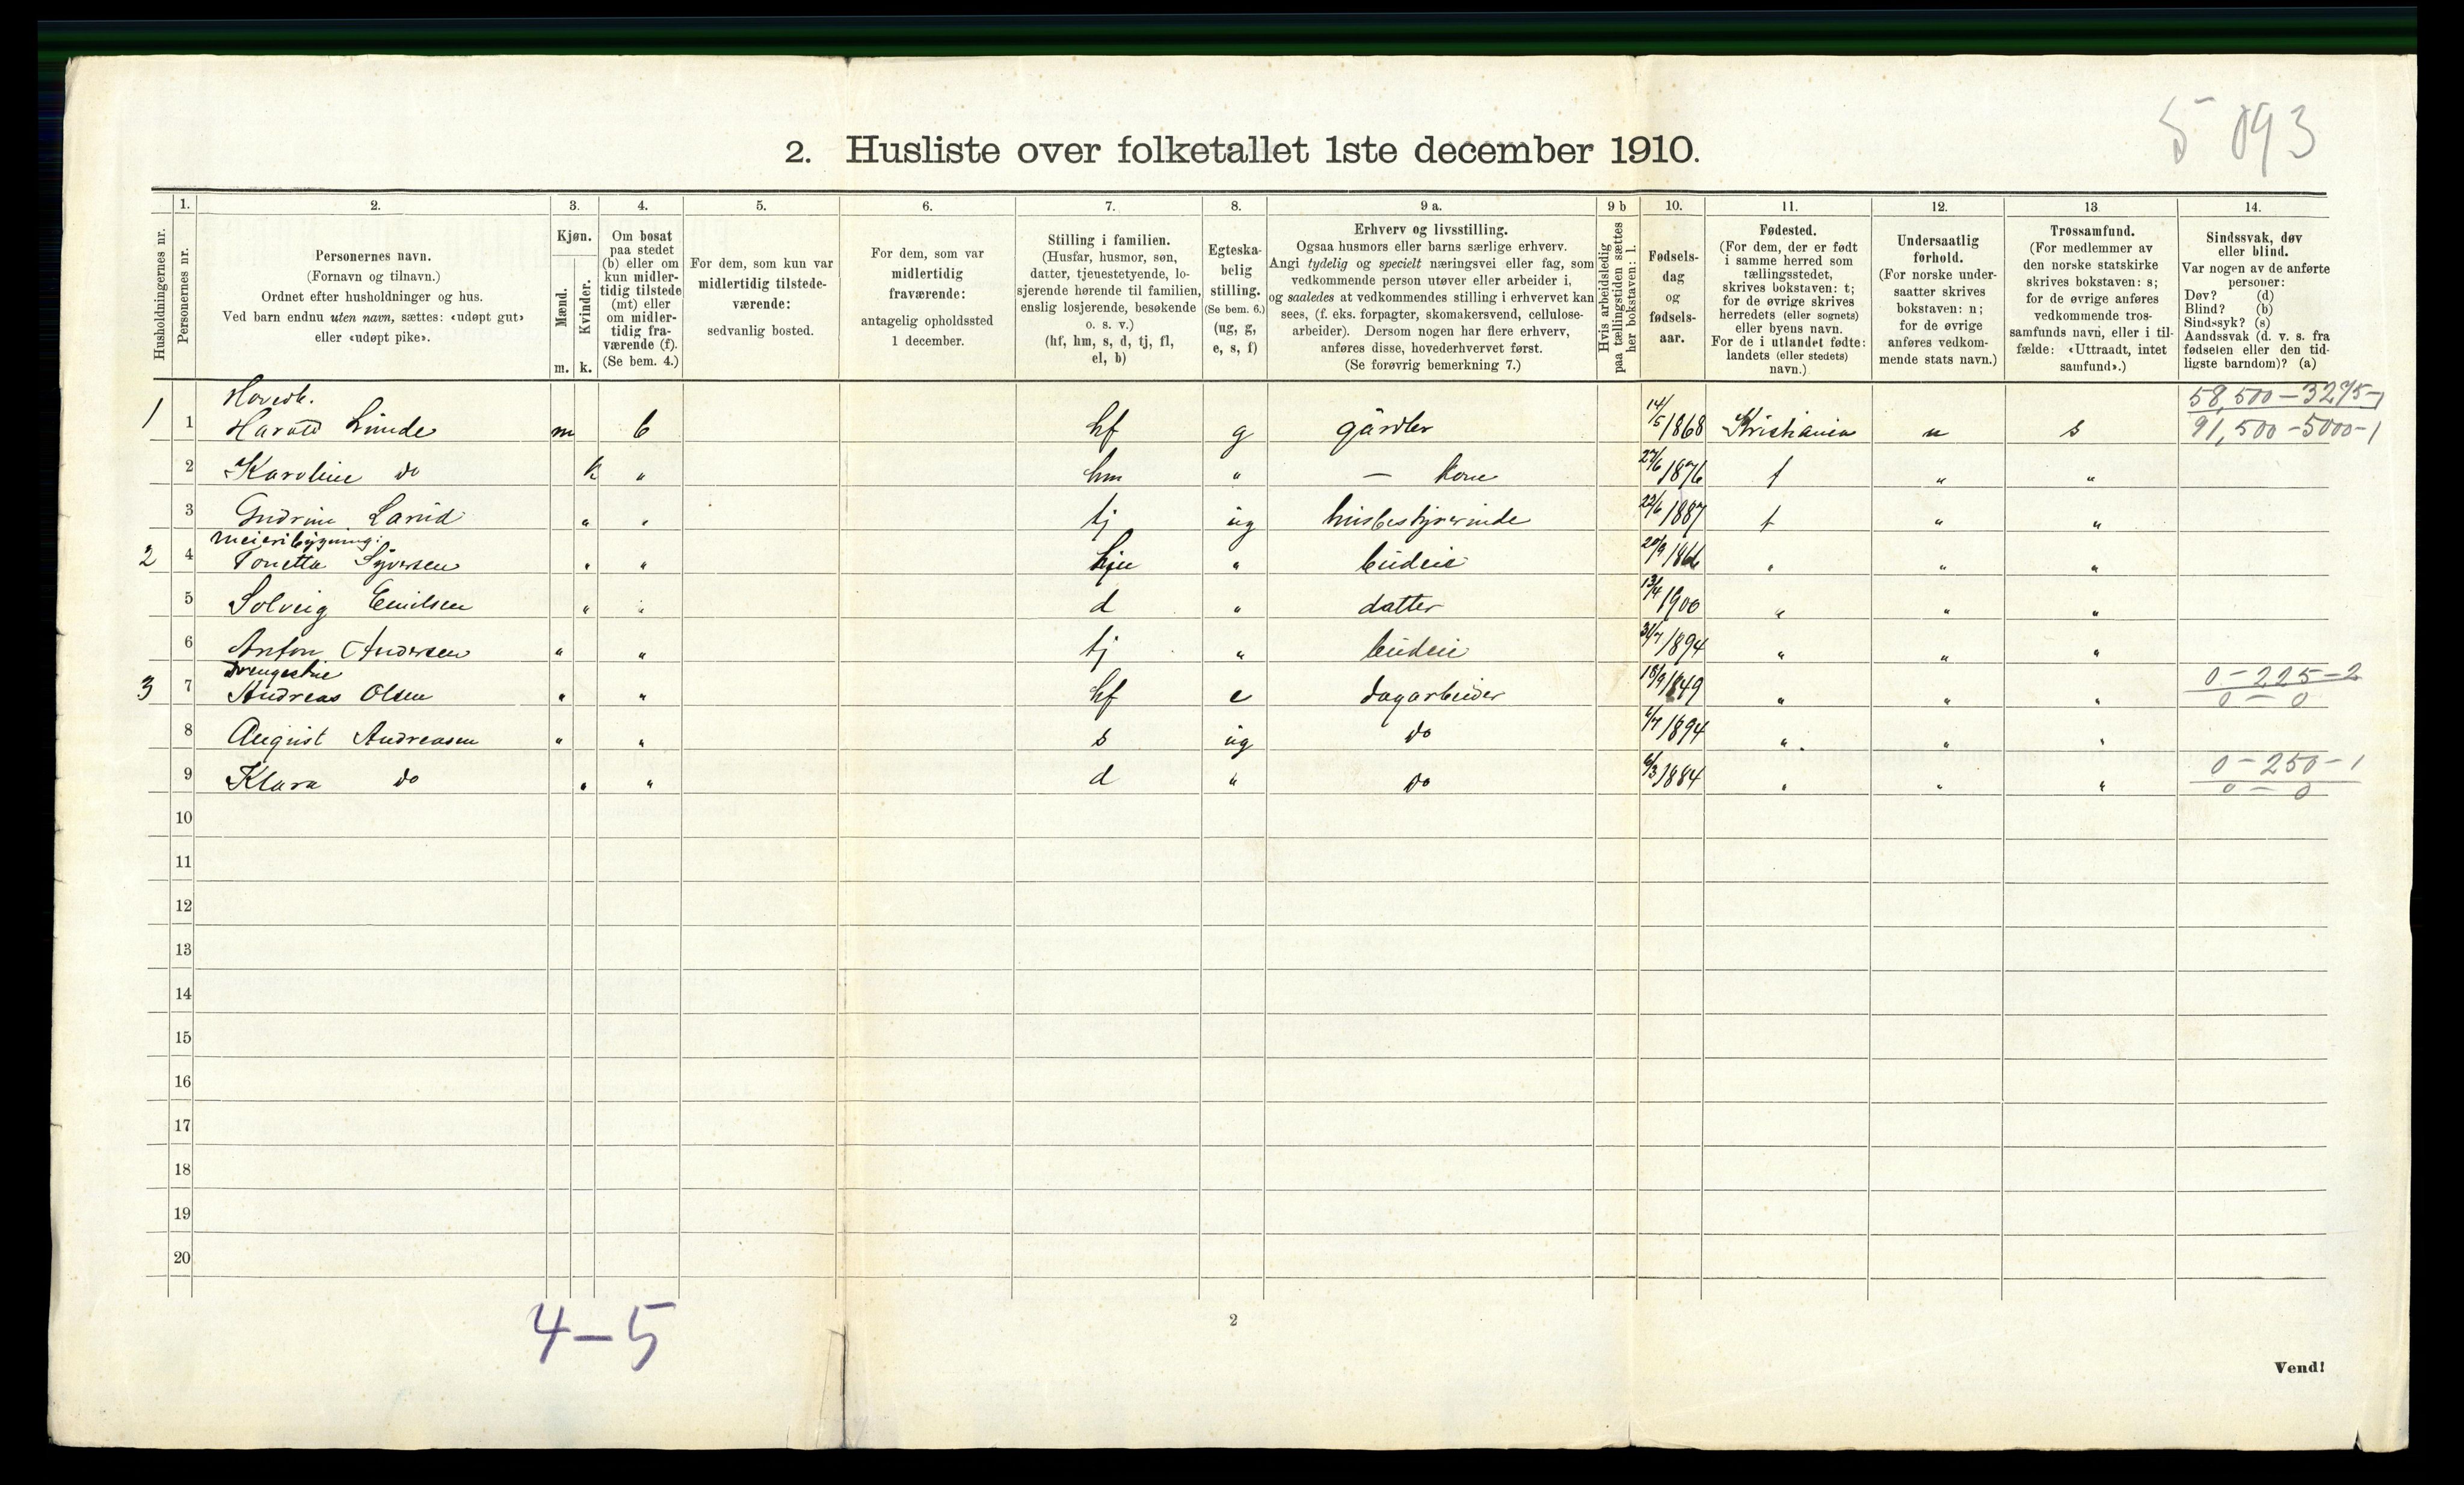 5 093
2. Husliste over folketallet 1ste december 1910.
Husholdningernes nr.
1.
Personernes nr.
2.
Personernes navn.
(Fornavn og tilnavn.)
Ordnet efter husholdninger og hus.
Ved barn endnu uten navn, sættes: «udøpt gut»
eller «udøpt pike».
3.
Kjøn.
Mænd.
Kvinder.
m. k.
4.
Om bosat
paa stedet
(b) eller om
kun midler-
tidig tilstede
(mt) eller
om midler-
tidig fra-
værende (f).
(Se bem. 4.)
5.
For dem, som kun var
midlertidig tilstede-
værende:
sedvanlig bosted.
6.
For dem, som var
midlertidig
fraværende:
antagelig opholdssted
1 december.
7.
Stilling i familien.
(Husfar, husmor, søn,
datter, tjenestetyende, lo-
sjerende hørende til familien,
enslig losjerende, besøkende
o. s. v.)
(hf, hm, s, d, tj, fl,
el, b)
8.
Egteska-
belig
stilling.
(Se bem. 6.)
(ug, g,
e, s, f)
9 a.
Erhverv og livsstilling.
Ogsaa husmors eller barns særlige erhverv.
Angi tydelig og specielt næringsvei eller fag, som
vedkommende person utøver eller arbeider i,
og saaledes at vedkommendes stilling i erhvervet kan
sees, (f. eks. forpagter, skomakersvend, cellulose-
arbeider). Dersom nogen har flere erhverv,
anføres disse, hovederhvervet først.
(Se forøvrig bemerkning 7.)
9 b
Hvis arbeidsledig
paa tællingstiden sættes
her bokstaven: l.
10.
Fødsels-
dag
og
fødsels-
aar.
11.
Fødested.
(For dem, der er født
i samme herred som
tællingsstedet,
skrives bokstaven: t;
for de øvrige skrives
herredets (eller sognets)
eller byens navn.
For de i utlandet fødte:
landets (eller stedets)
navn.)
12.
Undersaatlig
forhold.
(For norske under-
saatter skrives
bokstaven: n;
for de øvrige
anføres vedkom-
mende stats navn.)
13
Trossamfund.
(For medlemmer av
den norske statskirke
skrives bokstaven: s;
for de øvrige anføres
vedkommende tros-
samfunds navn, eller i til-
fælde: «Uttraadt, intet
samfund».)
14.
Sindssvak, døv
eller blind.
Var nogen av de anførte
personer:
Døv? (d)
Blind? (b)
Sindssyk? (s)
Aandssvak (d. v. s. fra
fødselen eller den tid-
ligste barndom)? (a)
Hovedb. 58,500-3275-1
1 1 Harald Linde m b hf g gårdbr 14/5 1868 Kristiania n s 91,500-5000-1
2 Karoline do k " hm " — kone 27/6 1876 t " "
3 Gudrun Larud " " tj ug husbestyrerinde 22/6 1887 t " "
meieribygning:
2 4 Tonetta Syversen " " " budeie 20/9 1866 " " "
5 Solveig Emilsen " " d " datter 13/4 1900 " " "
6 Anton Andersen " " tj " budeie 31/7 1894 " " "
Drengestue 0-225-2
3 7 Andreas Olsen " " hf e dagarbeider 18/9 1849 " " " 0-0
8 August Andreasen " " s ug do 6/7 1894 " " "
9 Klara do " " d " do 6/3 1884 " " " 0-250-1
0-0
10
11
12
13
14
15
16
17
18
19
20
4-5
2
Vend!